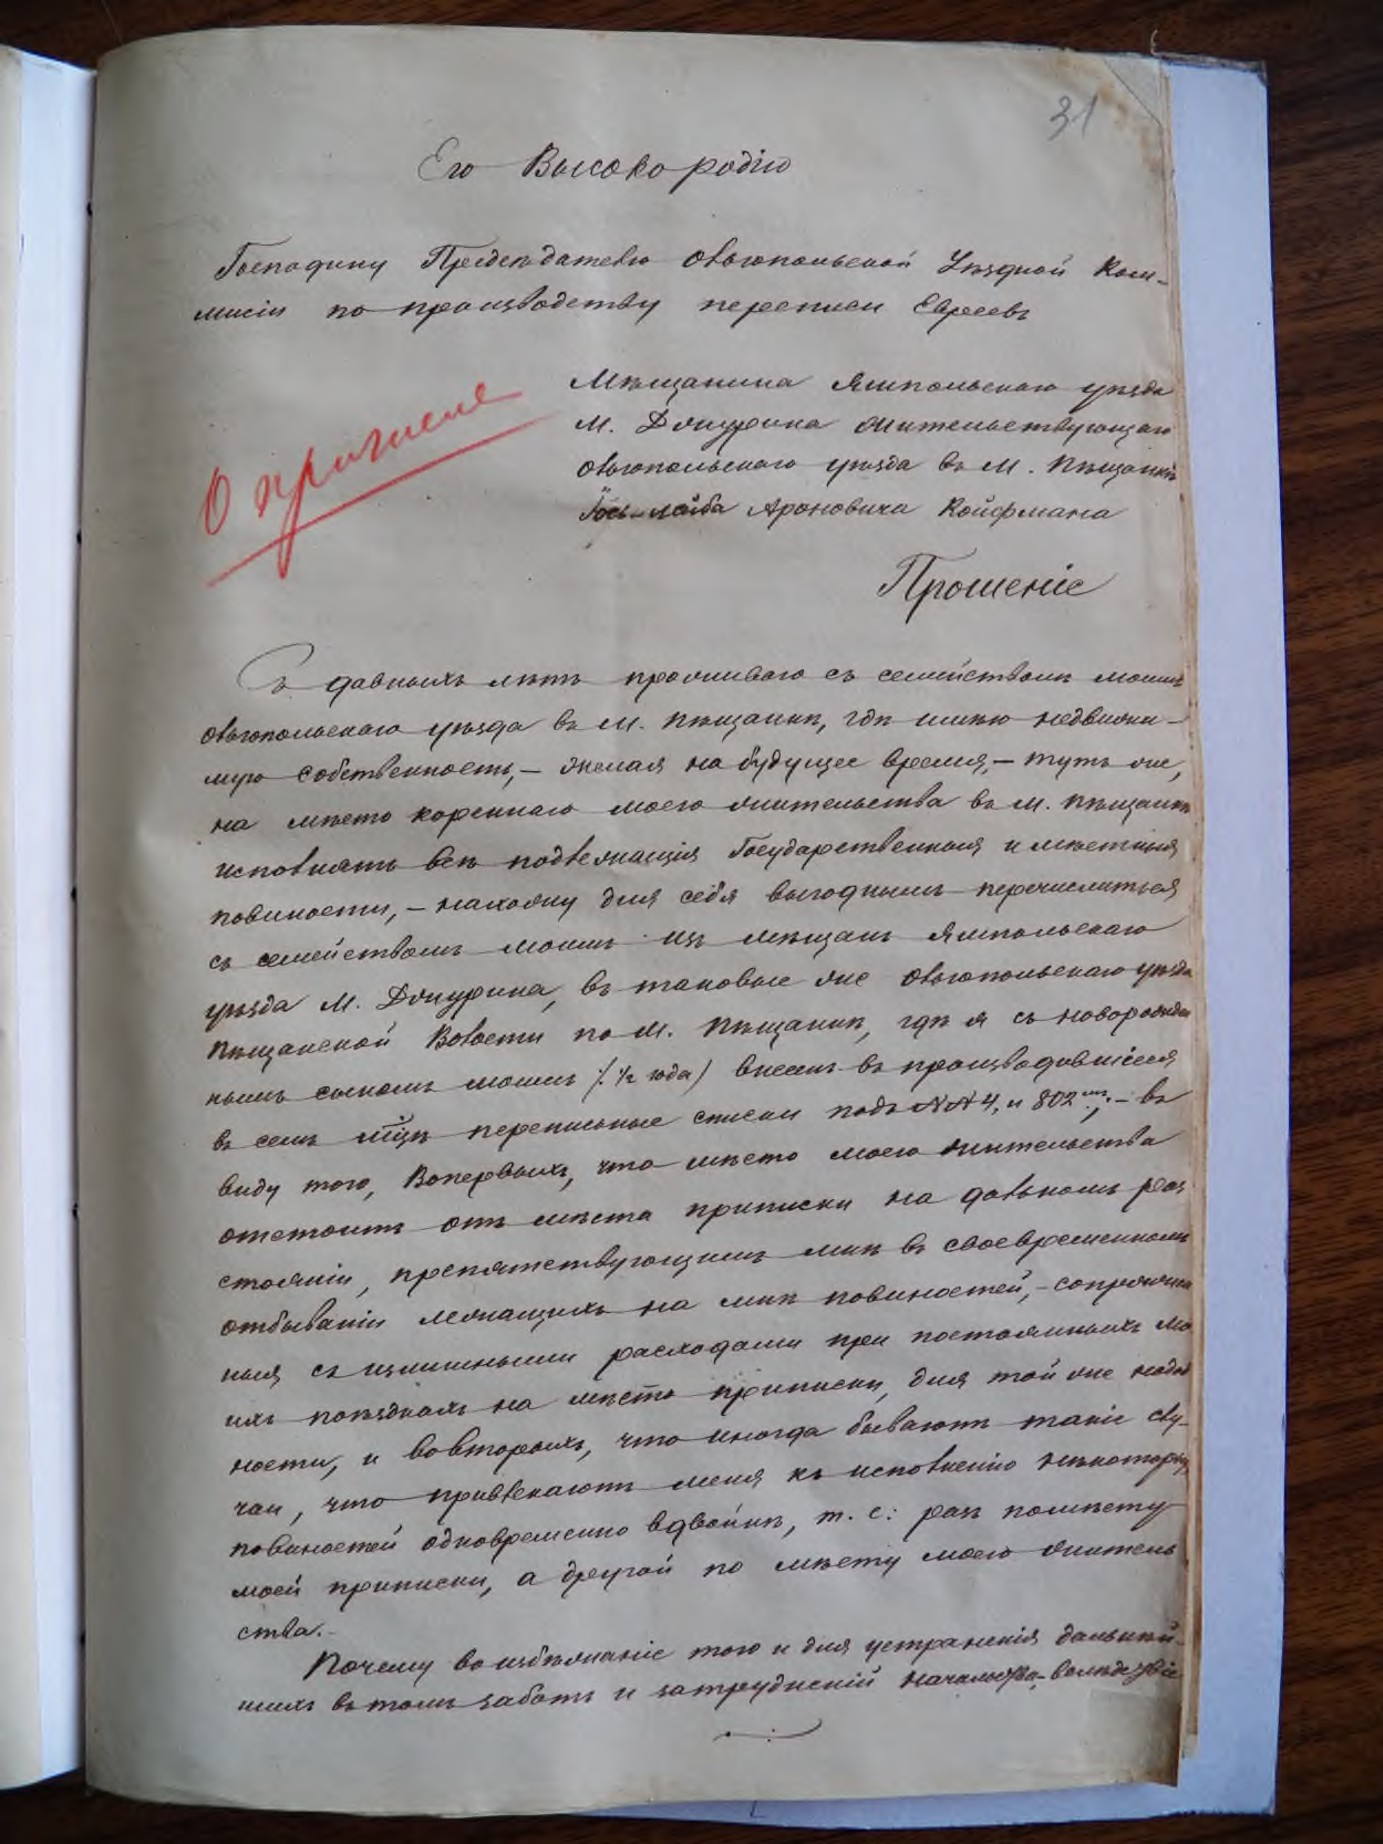 31
Его Высокородію
Господину Предсѣдателю Ольгопольской Уѣздной Ком-
мисіи по производству переписи Евреевъ
О причисле
Мѣщанина Ямпольскаго уѣзда
М. Джурина жительствующаго
Ольгопольскаго уѣзда въ М. Пѣщанкѣ
Іось-Лейба Ароновича Койфмана
Прошеніе
Съ давныхъ лѣтъ проживаю съ семействомъ моимъ
Ольгопольскаго уѣзда въ М. Пѣщанкѣ, гдѣ имѣю недвижи-
мую собственность, – желая на будущее время, – тутъ же,
на мѣсто кореннаго моего жительства въ М. Пѣщанкѣ
исполнять всѣ подлежащія Государственныя и мѣстныя
повиности, – нахожу для себя выгоднымъ перечислиться
съ семействомъ моимъ изъ мѣщанъ Ямпольскаго
уѣзда М. Джурина, въ таковые же Ольгопольскаго уѣзда
Пѣщанской Волости по М. Пѣщанкѣ, гдѣ я съ новорожден
нымъ сыномъ моимъ /: ½ года) внесенъ въ производившіеся
въ семъ м̃цѣ переписные списки подъ №№ 4, и 802мъ, – въ
виду того, Вопервыхъ, что мѣсто моего жительства
отстоитъ отъ мѣста приписки на дальномъ раз
стояніи, препятствующимъ мнѣ въ своевременномъ
отбываніи лежащихъ на мнѣ повиностей, – сопряжен
ныя съ излишными расходами при постоянныхъ мо
ихъ поѣздкахъ на мѣсто приписки, для той же надоб
ности, и вовторыхъ, что иногда бываютъ такіе слу-
чаи, что привлекаютъ меня къ исполненію нѣкоторых
повиностей одновременно вдвойнѣ, т. е: разъ помѣсту
моей приписки, а другой по мѣсту моего житель
ства. –
Почему во избѣжаніе того и для устраненія дальнѣй-
шихъ въ томъ заботъ и затрудненій начальства, вслѣдствіе